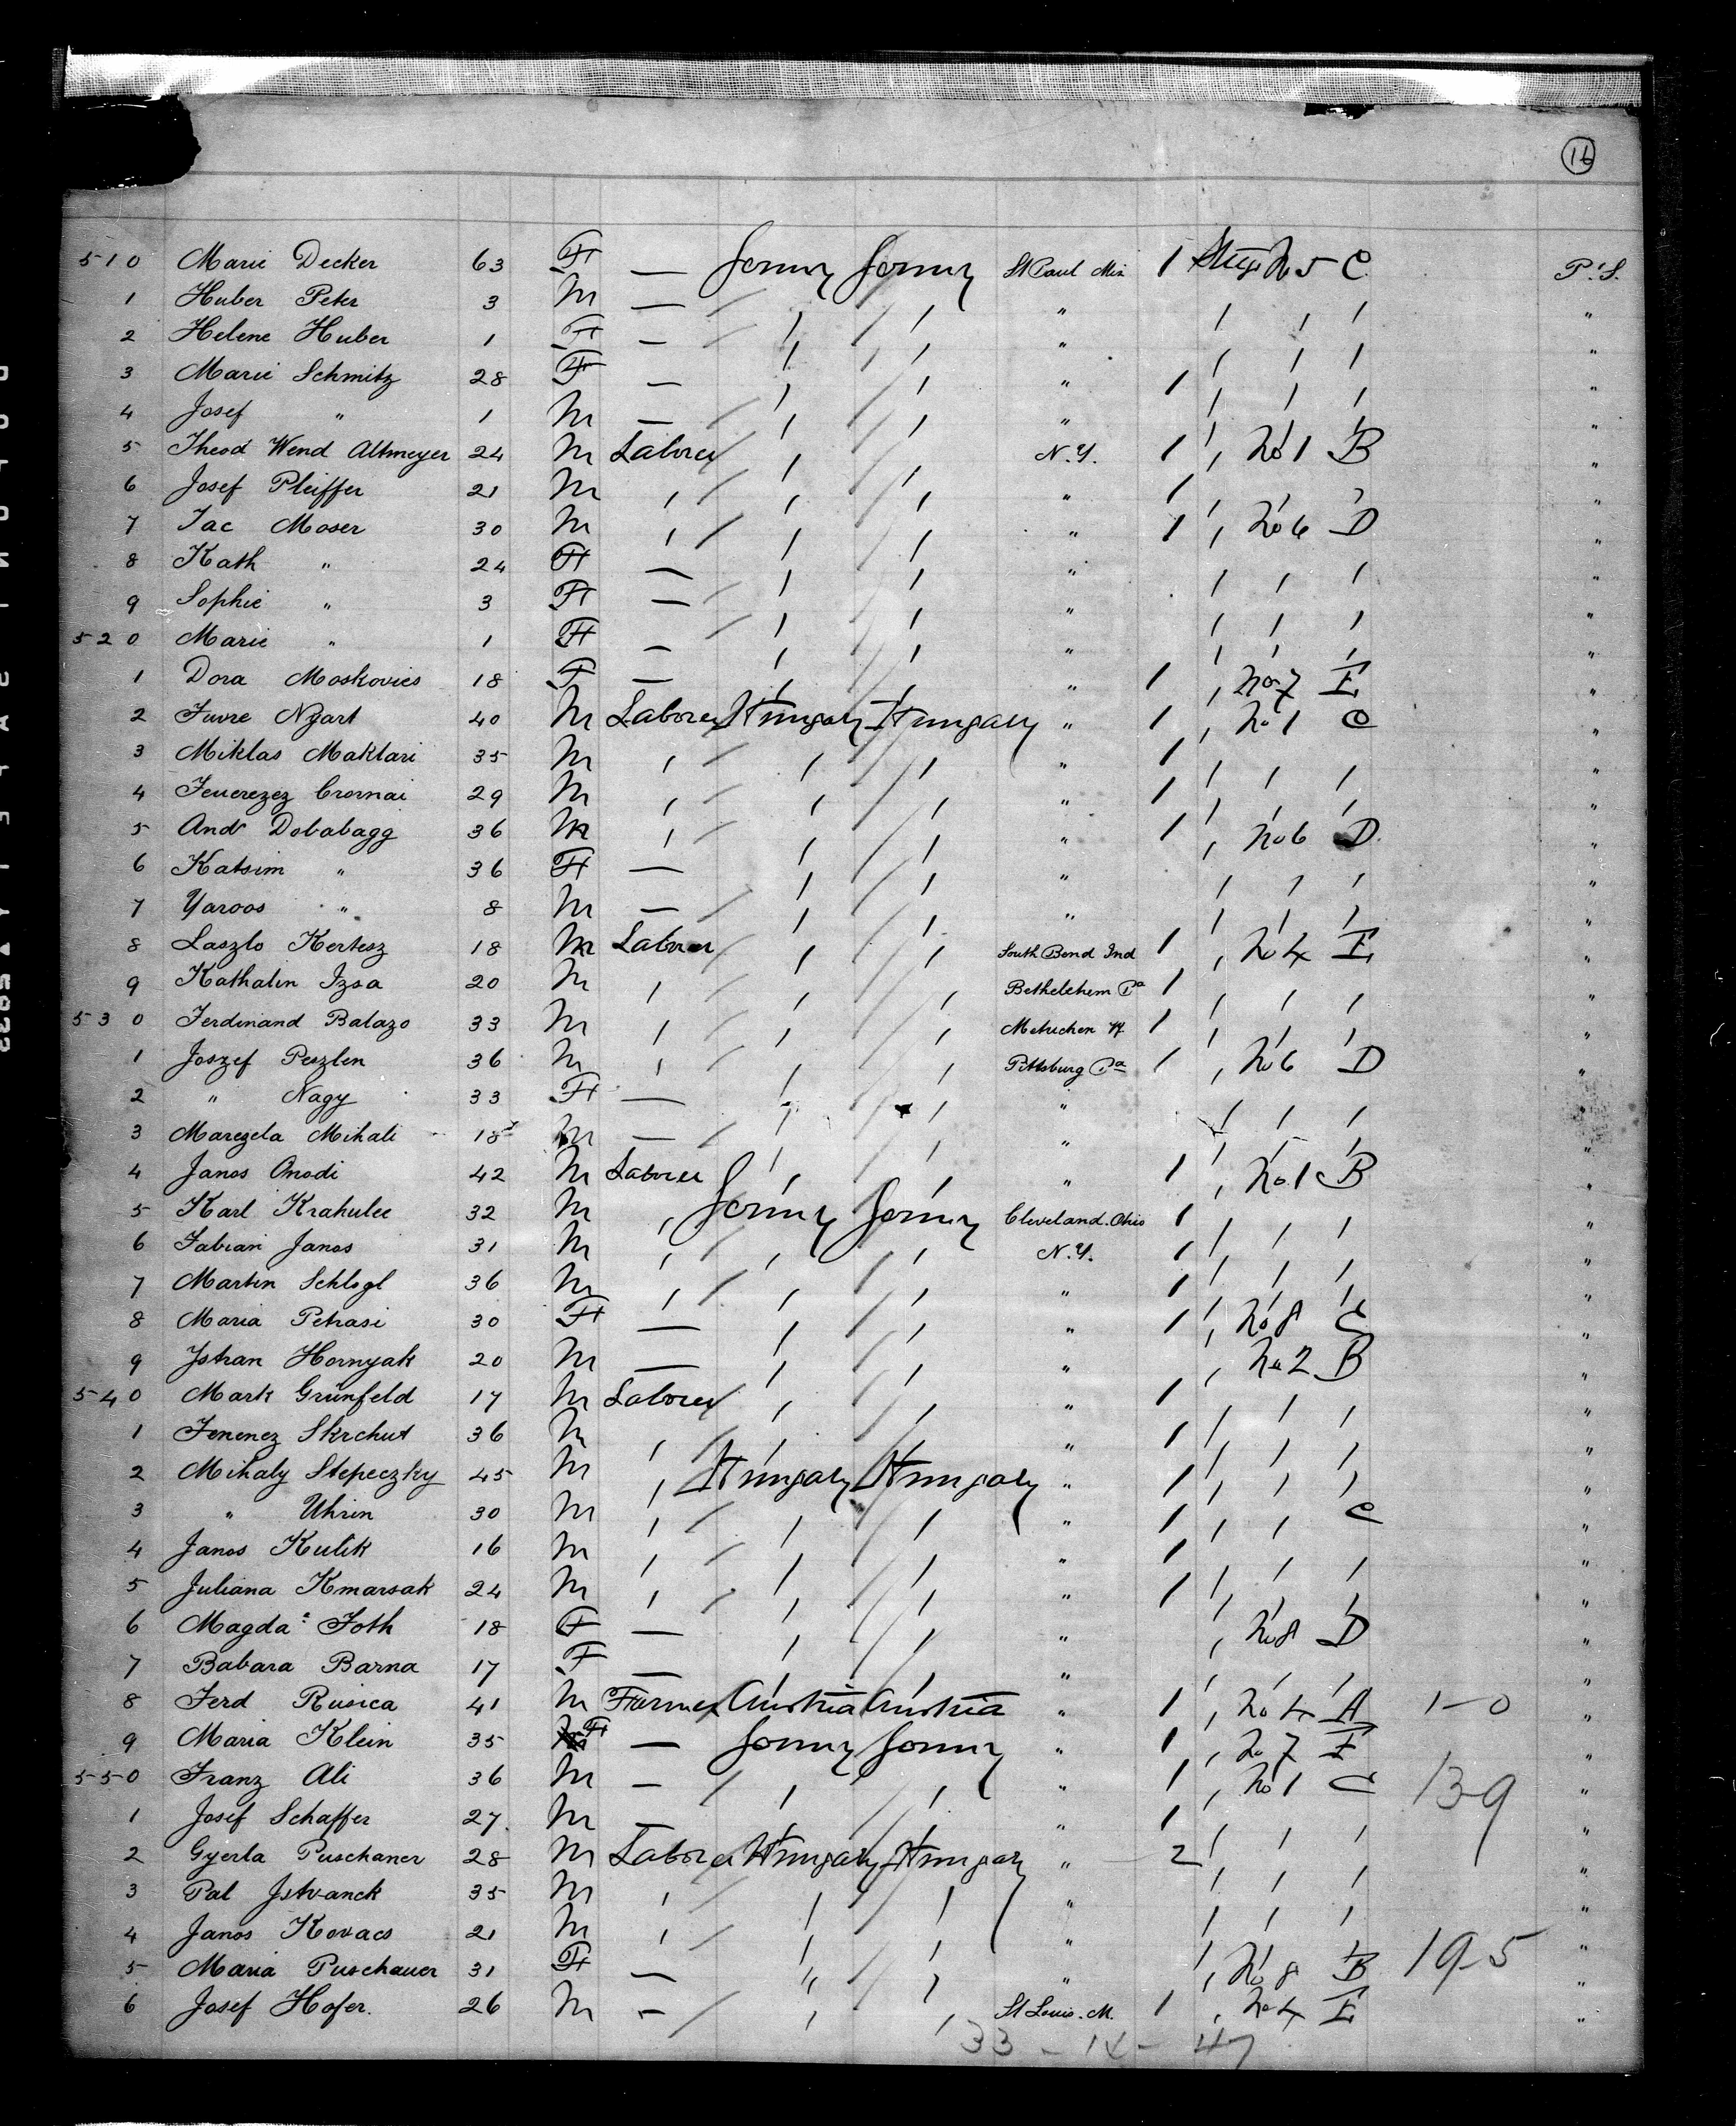 16
510 Marie Decker 63 F — Germy Germy St Paul Min 1 Steer No 5 C P.S.
1 Huber Peter 3 M — / / / " / / / "
2 Helene Huber 1 F — / / / " / / / "
3 Marie Schmitz 28 F — / / / " 1 / / / "
4 Josef " 1 M — / / / " / / / "
5 Theod Wend Altmeyer 24 M Laborer / / N.Y. 1 , No 1 B "
6 Josef Pleiffer 21 M , / / " 1 / / / "
7 Jac Moser 30 M , / / " 1 , No 6 D "
8 Kath " 24 F — / / " / / / "
9 Sophie " 3 F — / / " / / / "
520 Marie " 1 F — / / " / / / "
1 Dora Moskovics 18 F — / / " 1 , No 7 E "
2 Juvre Nyart 40 M Laborer Hungary Hungary " 1 , No 1 C "
3 Miklas Maktari 35 M , / / " 1 / / / "
4 Feuerezez Crornai 29 M , / / " 1 / / / "
5 Andr Dobabagg 36 M , / / " 1 , No 6 D "
6 Katsim " 36 F — / / " / / / "
7 Yaroos " 8 M — / / " / / / "
8 Laszlo Kertesz 18 M Laborer / / South Bend Ind 1 , No 4 E "
9 Kathalin Izsa 20 M , / / Bethelehem Pa 1 / / / "
530 Ferdinand Balazo 33 M , / / Metuchen 1 / / / "
1 Joszef Peszlen 36 M , / / Pittsburg Pa 1 , No 6 D "
2 " Nagy 33 F — / / " / / / "
3 Marezela Mihali 18 M — / / " / / / "
4 Janos Onodi 42 M Laborer / / " 1 , No 1 B "
5 Karl Krahulee 32 M , Germy Germy Cleveland. Ohio 1 / / / "
6 Fabian Janos 31 M , / / N.Y. 1 / / / "
7 Martin Schlogl 36 M , / / " 1 / / / "
8 Maria Petrasi 30 F — / / " 1 , No 8 C "
9 Jstvan Hornyak 20 M — / / " , No 2 B "
540 Mark Grünfeld 17 M Laborer / / " 1 / / / "
1 Fenenez Skrchut 36 M , / / " 1 / / / "
2 Mihaly Stepeczky 45 M , Hungary Hungary " 1 / / / "
3 " Uhrin 30 M , / / " 1 / / C "
4 Janos Kulik 16 M , / / " 1 / / / "
5 Juliana Kmarsak 24 M , / / " 1 / / / "
6 Magda Toth 18 F — / / " , No 8 D "
7 Babara Barna 17 F — / / " / / / "
8 Ferd Rusica 41 M Farmer Austria Austria " 1 , No 4 A 1-0 "
9 Maria Klein 35 F — Germy Germy " 1 , No 7 E "
550 Franz Ali 36 M — / / " 1 , No 1 C 139 "
1 Josef Schaffer 27. M — / / " 1 / / / "
2 Gyerla Puschaner 28 M Laborer Hungary Hungary " 2 / / / "
3 Pal Jstvanck 35 M , / / " / / / "
4 Janos Kovacs 21 M , / / " / / / "
5 Maria Puschauer 31 F — " / " , No 8 B 195 "
6 Josef Hofer. 26 M — / / St Louis. M. 1 , No 4 E "
33 - 14 - 47